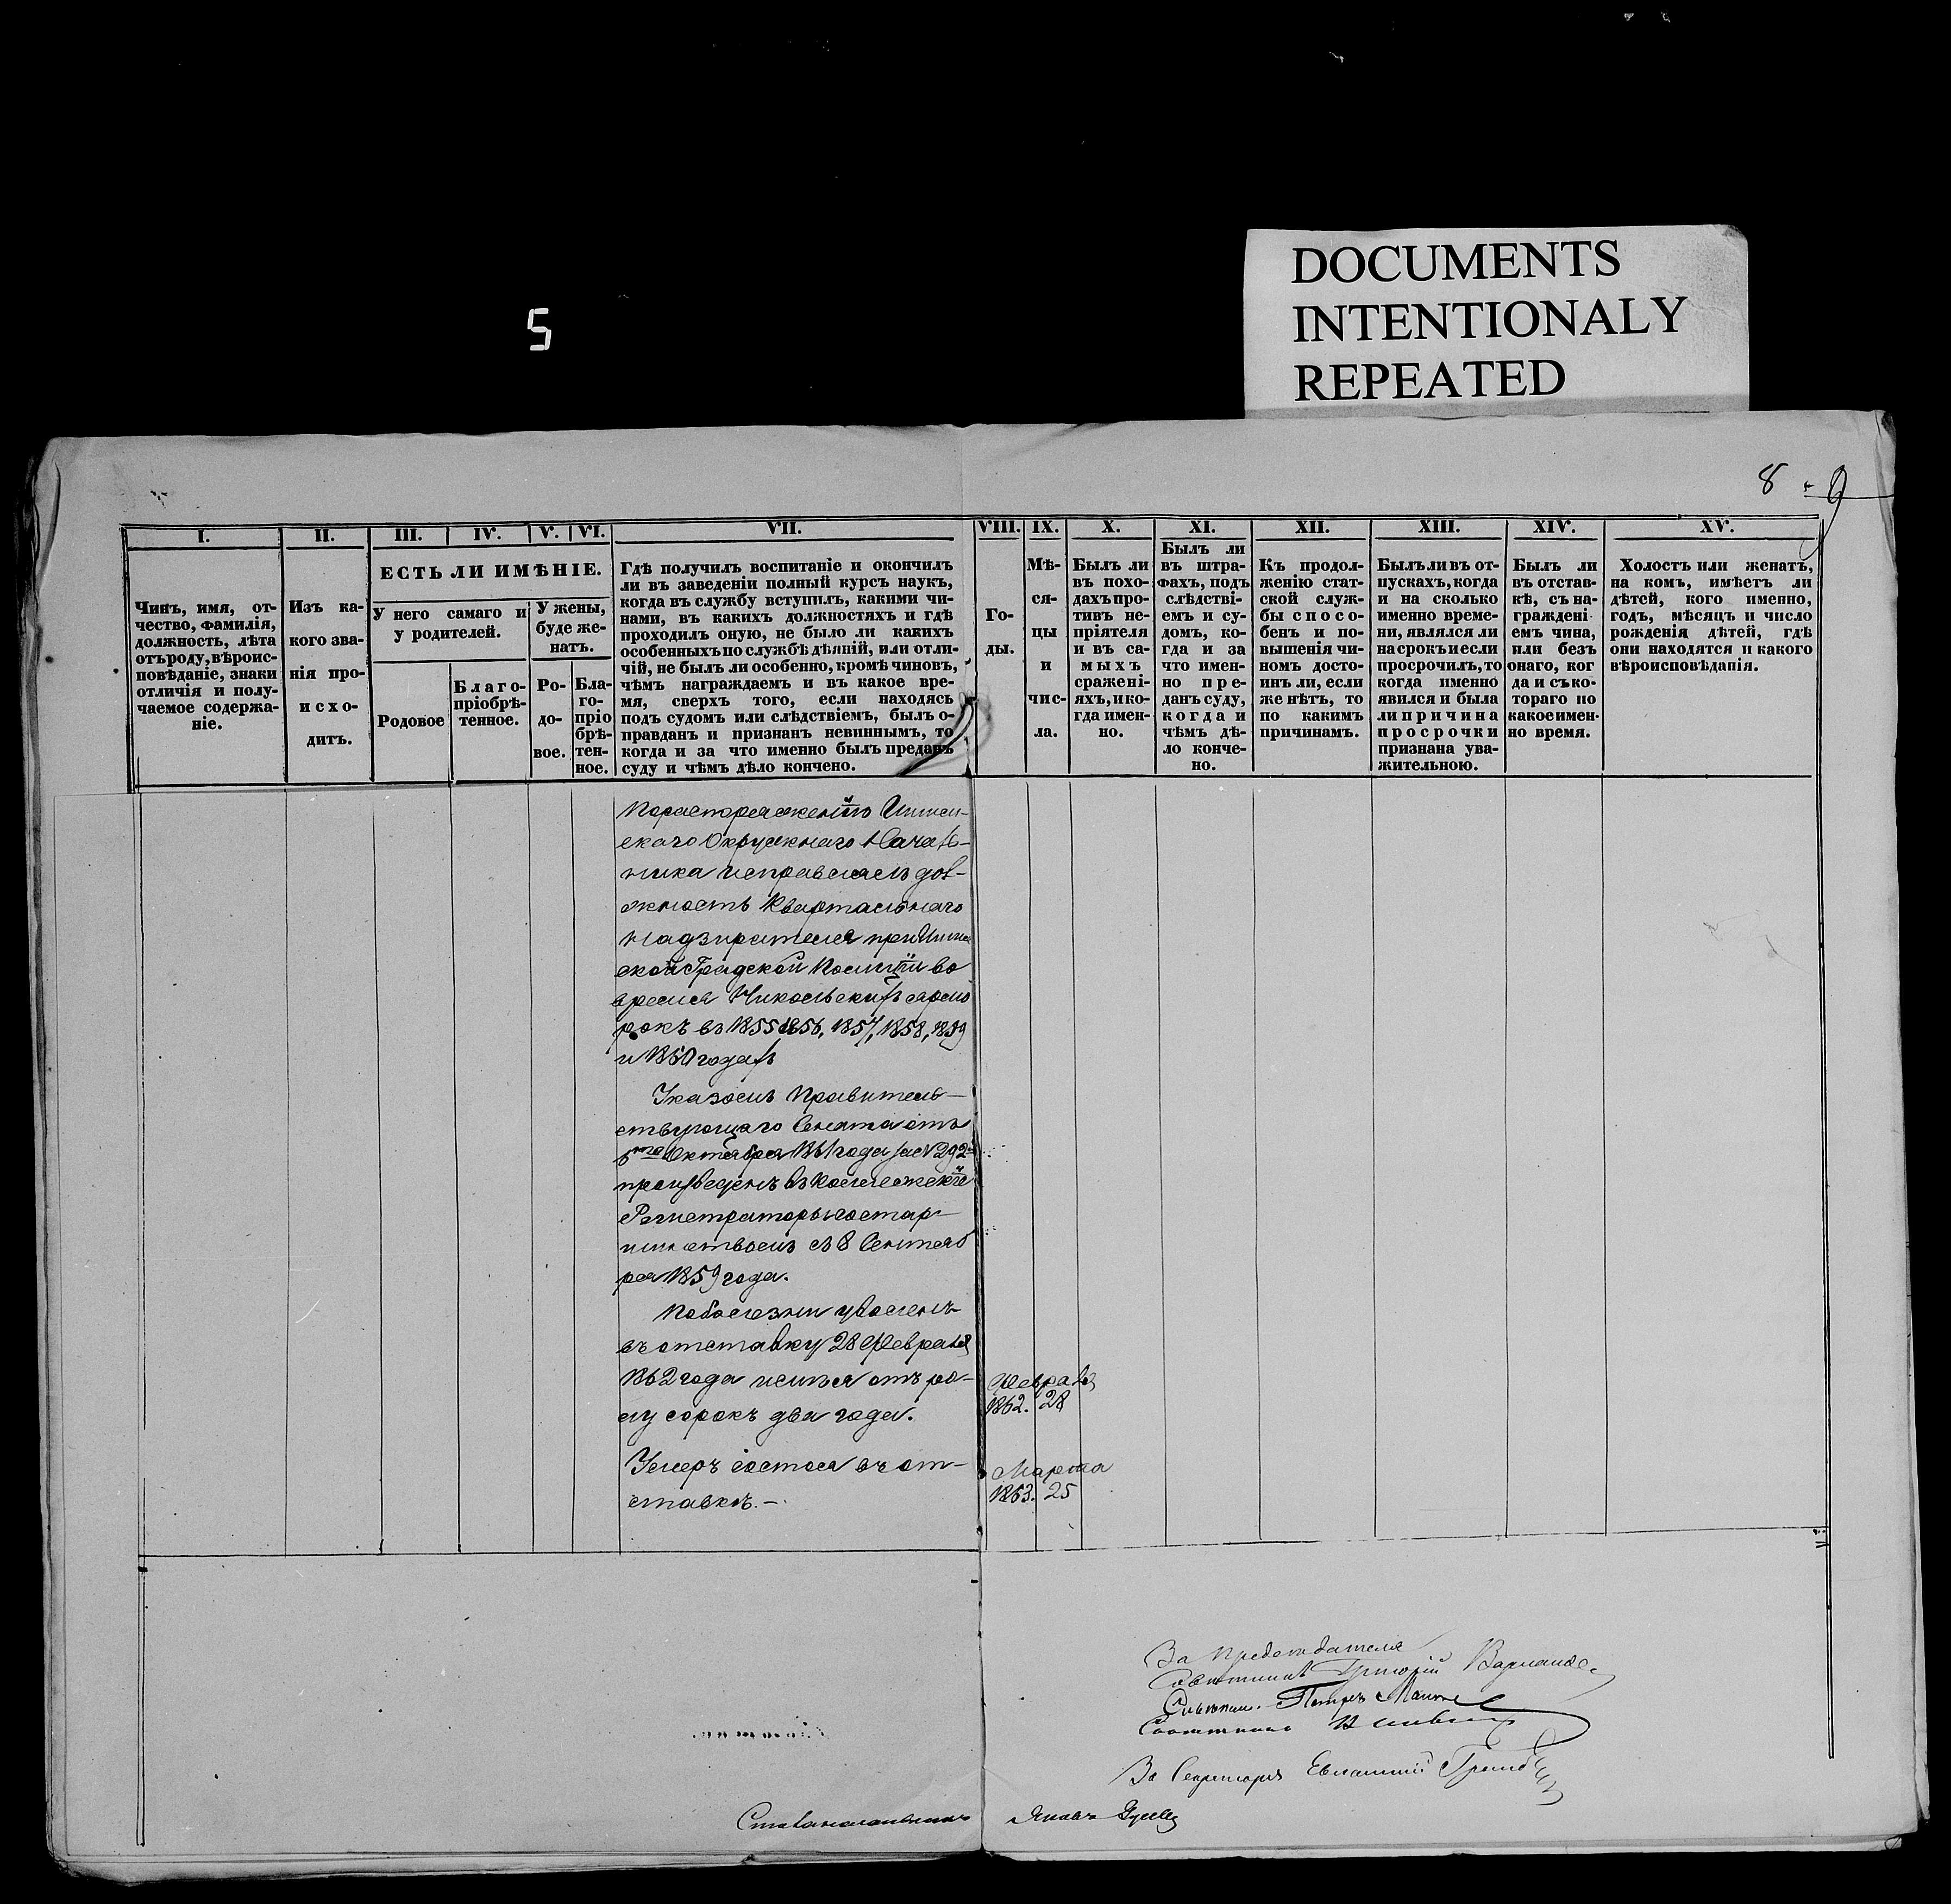 DOCUMENTS
INTENTIONALY
REPEATED
5
8 - 9
I.
II.
III.
IV.
V.
VI.
VII.
VIII.
IX.
X.
XI.
XII.
XIII.
XIV.
XV.
Чинъ, имя, от-
чество, фамилія,
должность, лѣта
отъ роду, вѣроис-
повѣданіе, знаки
отличія и полу-
чаемое содержа-
ніе.
Изъ ка-
кого зва-
нія про-
исхо-
дитъ.
ЕСТЬ ЛИ ИМѢНІЕ.
У него самаго и
у родителей.
У жены,
буде же-
натъ.
Родовое
Благо-
пріобрѣ-
тенное.
Ро-
до-
вое.
Бла-
го-
пріо
брѣ-
тен-
ное.
Гдѣ получилъ воспитаніе и окончилъ
ли въ заведеніи полный курсъ наукъ,
когда въ службу вступилъ, какими чи-
нами, въ какихъ должностяхъ и гдѣ
проходилъ оную, не было ли какихъ
особенныхъ по службѣ дѣяній, или отли-
чій, не былъ ли особенно, кромѣ чиновъ,
чѣмъ награждаемъ и въ какое вре-
мя, сверхъ того, если находясь
подъ судомъ или слѣдствіемъ, былъ о-
правданъ и признанъ невиннымъ, то
когда и за что именно былъ преданъ
суду и чѣмъ дѣло кончено.
Го-
ды.
Мѣ-
ся-
цы
и
чис-
ла.
Былъ ли
въ похо-
дахъ про-
тивъ не-
пріятеля
и въ са-
мыхъ
сраженi-
яхъ, и ко-
гда имен-
но.
Былъ ли
въ штра-
фахъ, подъ
слѣдстві-
емъ и су-
домъ, ко-
гда и за
что имен-
но пре-
данъ суду,
когда и
чѣмъ дѣ-
ло конче-
но.
Къ продол-
женію стат-
ской служ-
бы спосо-
бенъ и по-
вышенія чи-
номъ досто-
инъ ли, если
же нѣтъ, то
по какимъ
причинамъ.
Былъ ли въ от-
пускахъ, когда
и на сколько
именно време-
ни, являлся ли
на срокъ и если
просрочилъ, то
когда именно
явился и была
ли причина
просрочки
признана ува-
жительною.
Былъ ли
въ отстав-
кѣ, съ на-
граждені-
емъ чина,
или безъ
онаго, ког
да и съ ко-
тораго по
какое имен-
но время.
Холостъ или женатъ,
на комъ, имѣетъ ли
дѣтей, кого именно,
годъ, мѣсяцъ и число
рожденія дѣтей, гдѣ
они находятся и какого
вѣроисповѣданія.
По распоряженію Ишим-
скаго Окружнаго Началь-
ника исправлялъ дол-
жность Квартальнаго
Надзирателя при Ишим
ской Градской Полиціи во
время Никольскихъ ярмо
рокъ въ 1855 1856, 1857, 1858, 1859
и 1860 годахъ
Указомъ Правитель-
ствующаго Сената отъ
6го Октября 1861 года за № 292
произведенъ въ Коллежскіе
Регистраторы со стар-
шинствомъ съ 8 Сентяб
ря 1859 года.
По болезни уволенъ
въ отставку 28 Февраля
1862 года имѣя отъ ро-
ду сорокъ два года.
Февраля
1862. 28
Умеръ состоя въ от-
ставкѣ.-
Марта
1863. 25
За Предсѣдателя
Совѣтникъ Григорій
Совѣтник. Петръ
Совѣтникъ
За Секретаря
Столоначальникъ Яковъ